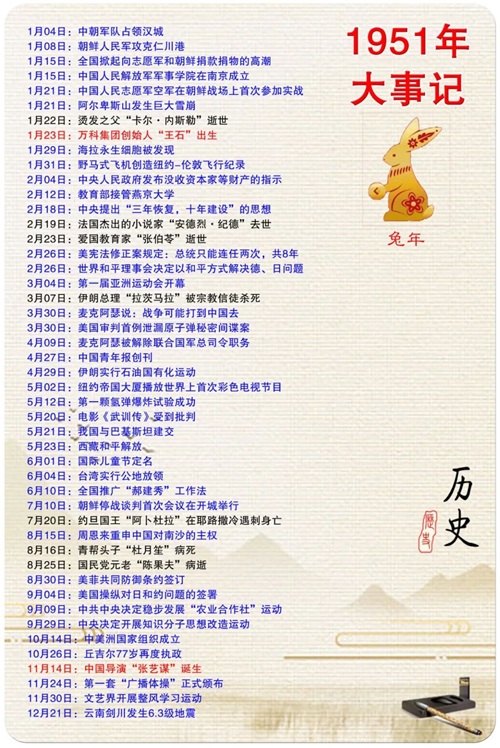 1951年
大事记
1月04日：中朝军队占领汉城
1月08日：朝鲜人民军攻克仁川港
1月15日：全国掀起向志愿军和朝鲜捐款捐物的高潮
1月15日：中国人民解放军军事学院在南京成立
1月21日：中国人民志愿军空军在朝鲜战场上首次参加实战
1月21日：阿尔卑斯山发生巨大雪崩
1月22日：烫发之父“卡尔·内斯勒”逝世
1月23日：万科集团创始人“王石”出生
1月29日：海拉永生细胞被发现
1月31日：野马式飞机创造纽约-伦敦飞行纪录
2月04日：中央人民政府发布没收资本家等财产的指示
2月12日：教育部接管燕京大学
2月18日：中央提出“三年恢复，十年建设”的思想
2月19日：法国杰出的小说家“安德烈·纪德”去世
2月23日：爱国教育家“张伯苓”逝世
2月26日：美宪法修正案规定：总统只能连任两次，共8年
2月26日：世界和平理事会决定以和平方式解决德、日问题
3月04日：第一届亚洲运动会开幕
3月07日：伊朗总理“拉茨马拉”被宗教信徒杀死
3月30日：麦克阿瑟说：战争可能打到中国去
3月30日：美国审判首例泄漏原子弹秘密间谍案
4月09日：麦克阿瑟被解除联合国军总司令职务
4月27日：中国青年报创刊
4月29日：伊朗实行石油国有化运动
5月02日：纽约帝国大厦播放世界上首次彩色电视节目
5月12日：第一颗氢弹爆炸试验成功
5月20日：电影《武训传》受到批判
5月21日：我国与巴基斯坦建交
5月23日：西藏和平解放
6月01日：国际儿童节定名
6月04日：台湾实行公地放领
6月10日：全国推广“郝建秀”工作法
7月10日：朝鲜停战谈判首次会议在开城举行
7月20日：约旦国王“阿卜杜拉”在耶路撒冷遇刺身亡
8月15日：周恩来重申中国对南沙的主权
8月16日：青帮头子“杜月笙”病死
8月25日：国民党元老“陈果夫”病逝
8月30日：美菲共同防御条约签订
9月04日：美国操纵对日和约问题的签署
9月09日：中共中央决定稳步发展“农业合作社”运动
9月29日：中央决定开展知识分子思想改造运动
10月14日：中美洲国家组织成立
10月26日：丘吉尔77岁再度执政
11月14日：中国导演“张艺谋”诞生
11月24日：第一套“广播体操”正式颁布
11月30日：文艺界开展整风学习运动
12月21日：云南剑川发生6.3级地震
兔年
历史
歷史